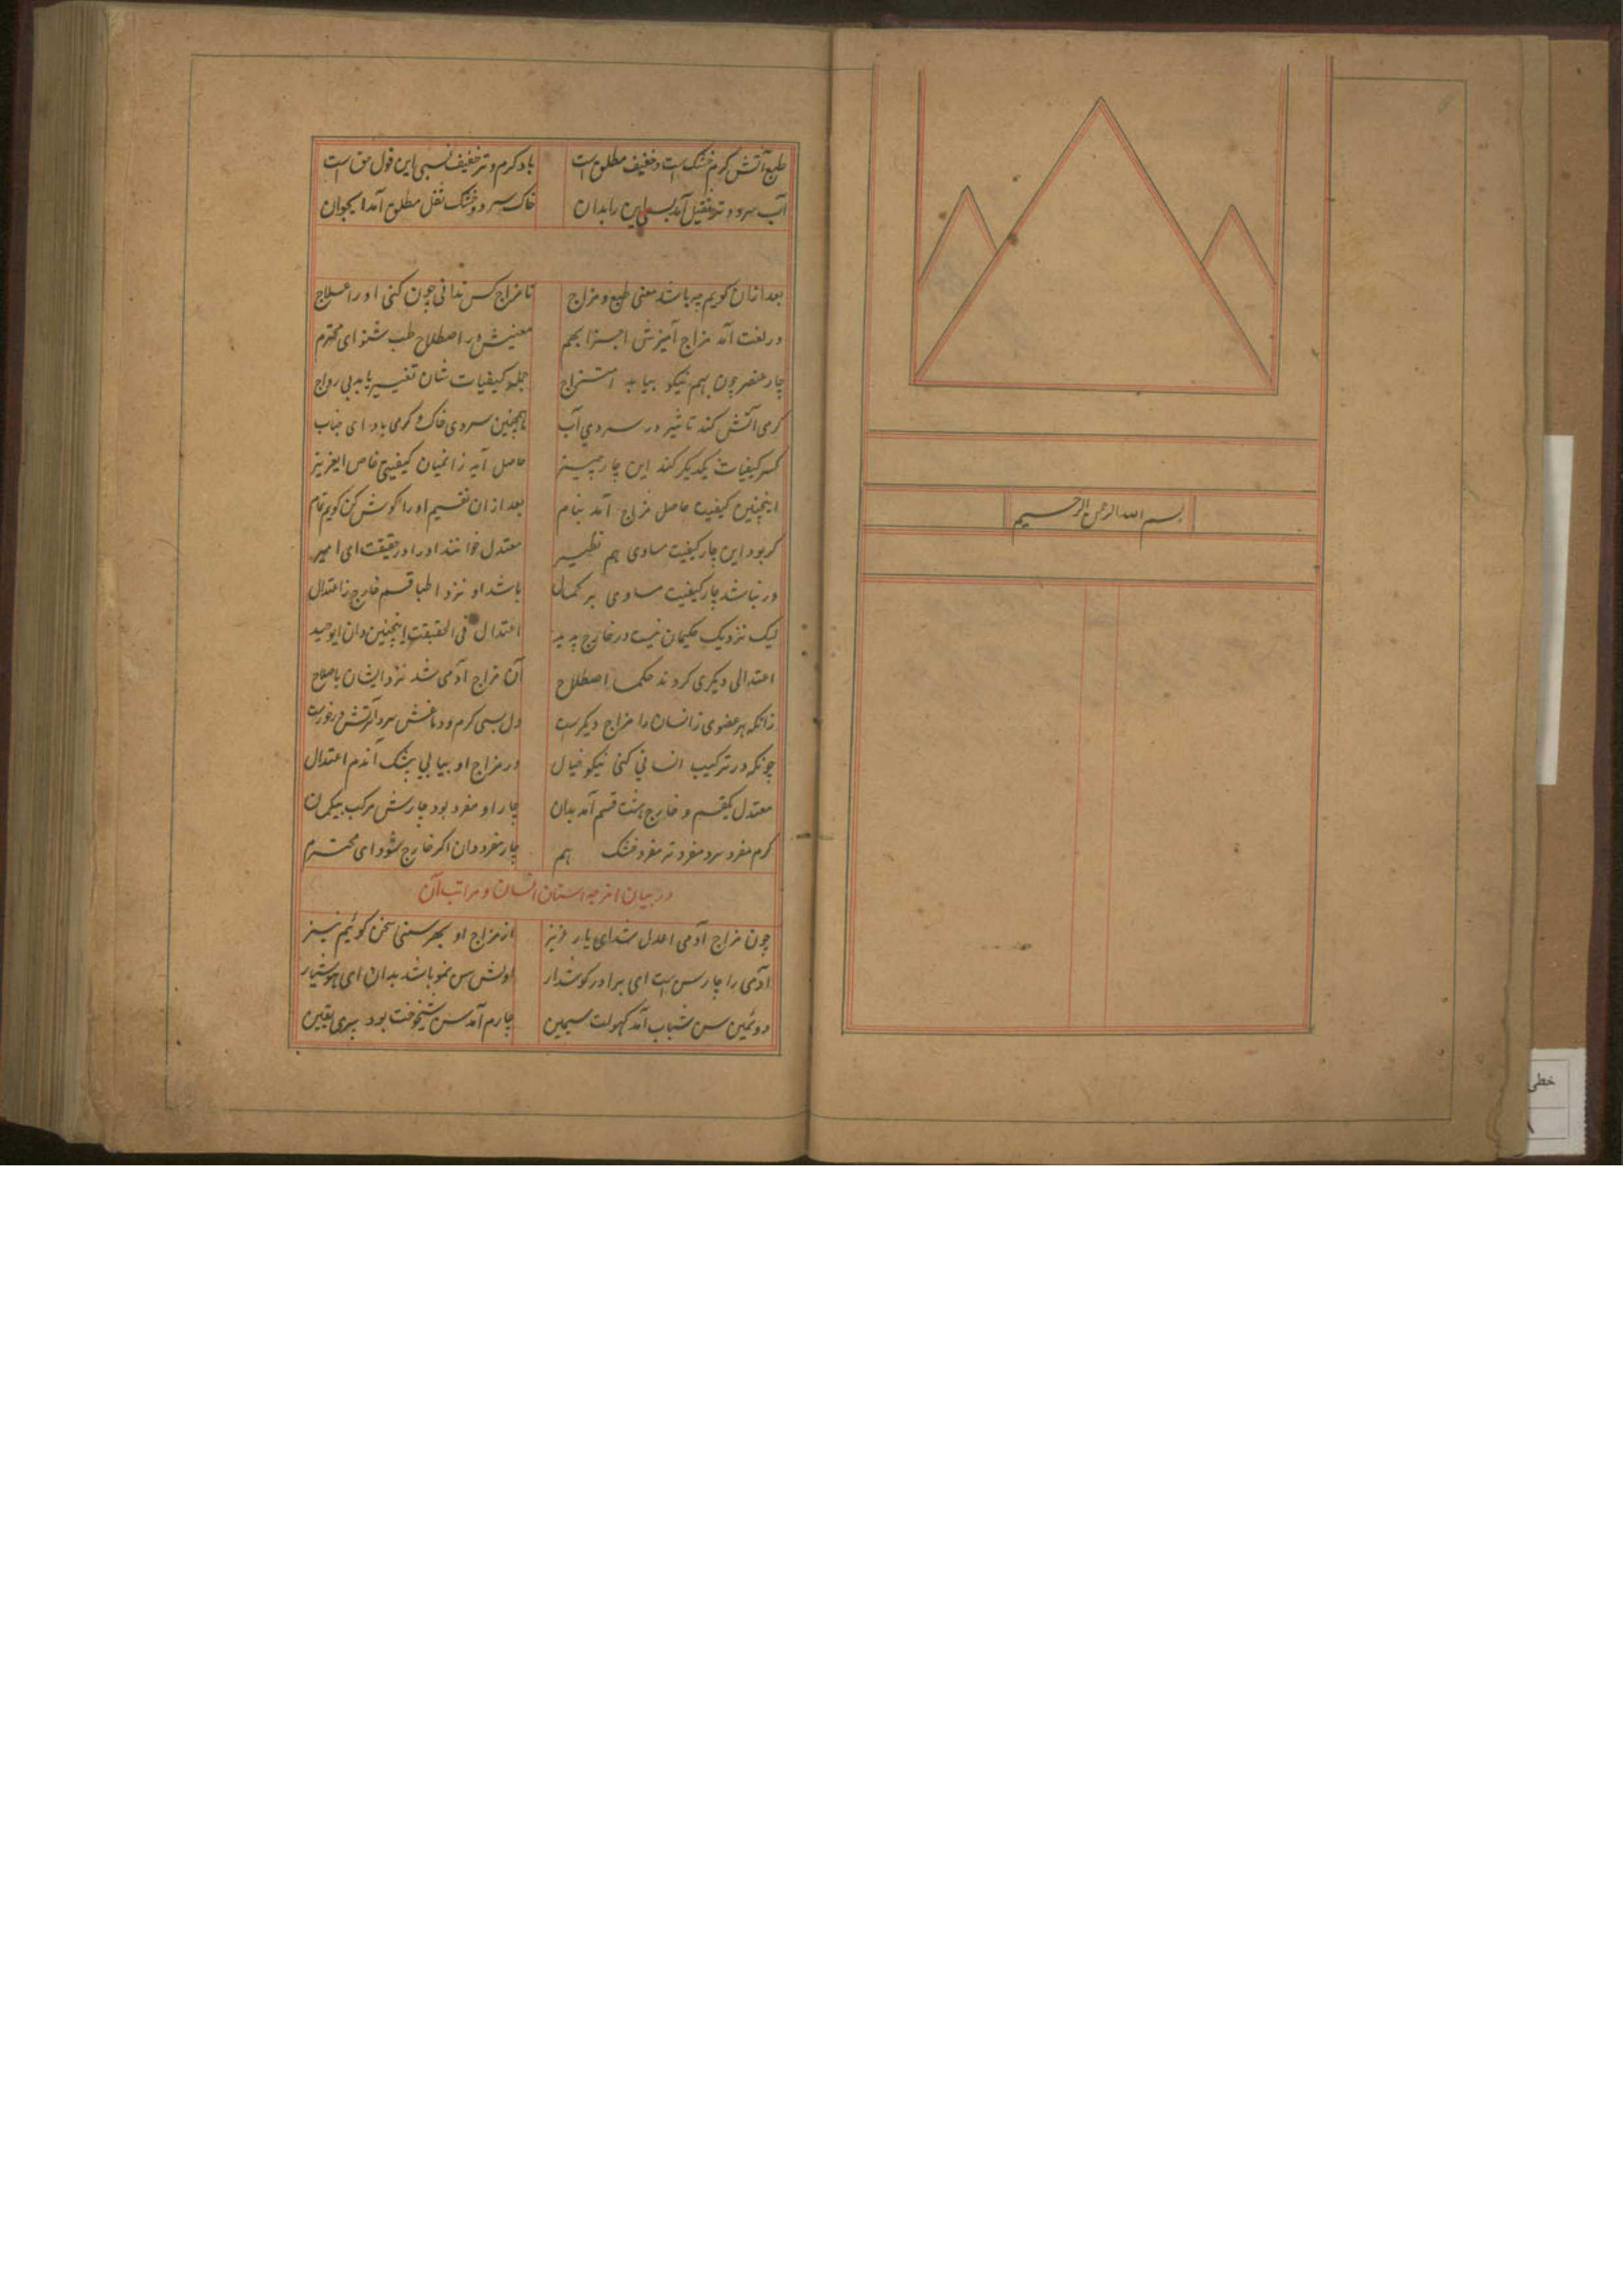 بسم الله الرحمن الرحیم
طبع آتش کرم خشک است و خفیف مطلق است باد کرم و تر خفیف نسبی این قول حق است
آب سرد و تر ثقیل آمد بسی این را بدان خاک سرد و خشک ثقل مطلق آمد ایجوان
بعد ازان کویم چه باشد معنی طبع و مزاج تا مزاج کس ندانی چون کنی او را علاج
در لغت آمد مزاج آمیزش اجزا بهم معنیش در اصطلاح طب شنو ای محترم
چار عنصر چون بهم نیکو بیابد امتزاج جمله کیفیات شان تغییر یابد بی رواج
کرمی آتش کند تاثیر در سردی آب همچنین سردی خاک و کرمی باد ای جناب
کسر کیفیات یکدیکر کند این چار چیز حاصل آید زانمیان کیفیتی خاص ایعزیز
اینچنین کیفیت حاصل مزاج آمد بنام بعد ازان تقسیم او را کوش کن کویم تمام
کر بود این چار کیفیت مساوی هم نظیر معتدل خوانند او را در حقیقت ای امیر
ور نباشد چار کیفیت مساوی بر کمال باشد او نزد اطبا قسم خارج زاعتدال
لیک نزدیک حکیمان نیست در خارج پدید اعتدال فی الحقیقت اینچنین دان ایوحید
اعتدالی دیکری کردند حکما اصطلاح آن مزاج آدمی شد نزد ایشان باصلاح
زانکه هر عضوی زانسان را مزاج دیکرست دل بسی کرم و دماغش سرد و تر
چونکه در ترکیب انسانی کنی نیکو خیال در مزاج او بیابی بیشک آندم اعتدال
معتدل یکقسم و خارج هشت قسم آمد بدان چار او مفرد بود چارش مرکب بیکمان
کرم مفرد سرد مفرد تر مفرد خشک هم چار مفرد دان اکر خارج شود ای محترم
در بیان امزجه اسنان انسان و مراتب آن
چون مزاج آدمی اعدل شد ای یار عزیز از مزاج او بهر سنی سخن کوئیم نیز
آدمی را چار سن است ای برادر کوشدار اولش سن نمو باشد بدان ای هوشیار
دوئمین سن شباب آمد کهولت سیمین چارم آمد سن شیخوخت بود پیری یقین
خطی